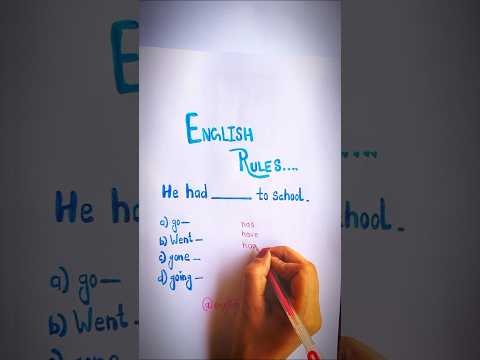 ENGLISH
RULES....
He had ______ to school.
a) go—
b) Went —
c) gone —
d) going —
has
have
had